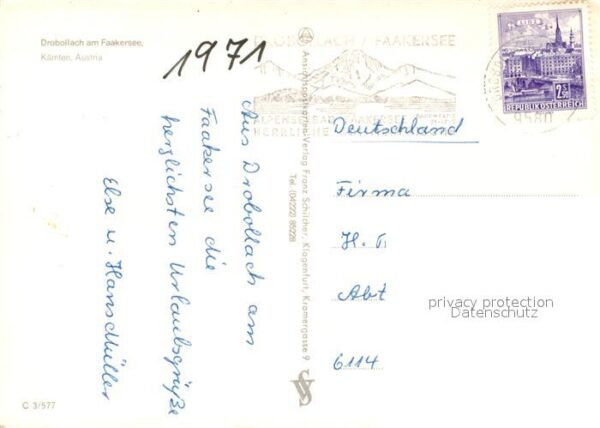 Drobollach am Faakersee,
Kärnten, Austria
1971
DROBOLLACH / FAAKERSEE
ALPENSEEBAD FAAKERSEE
HERRLICHE
LINZ
2.50
REPUBLIK ÖSTERREICH
9580
Aus Drobollach am
Faakersee die
herzlichsten Urlaubsgrüße
Else u. Hans Müller
Ansichtspostkarten-Verlag Franz Schilcher, Klagenfurt, Kramergasse 9
Tel. (04222) 85228
Deutschland
Firma
H. T.
Abt
6114
privacy protection
Datenschutz
C 3/577